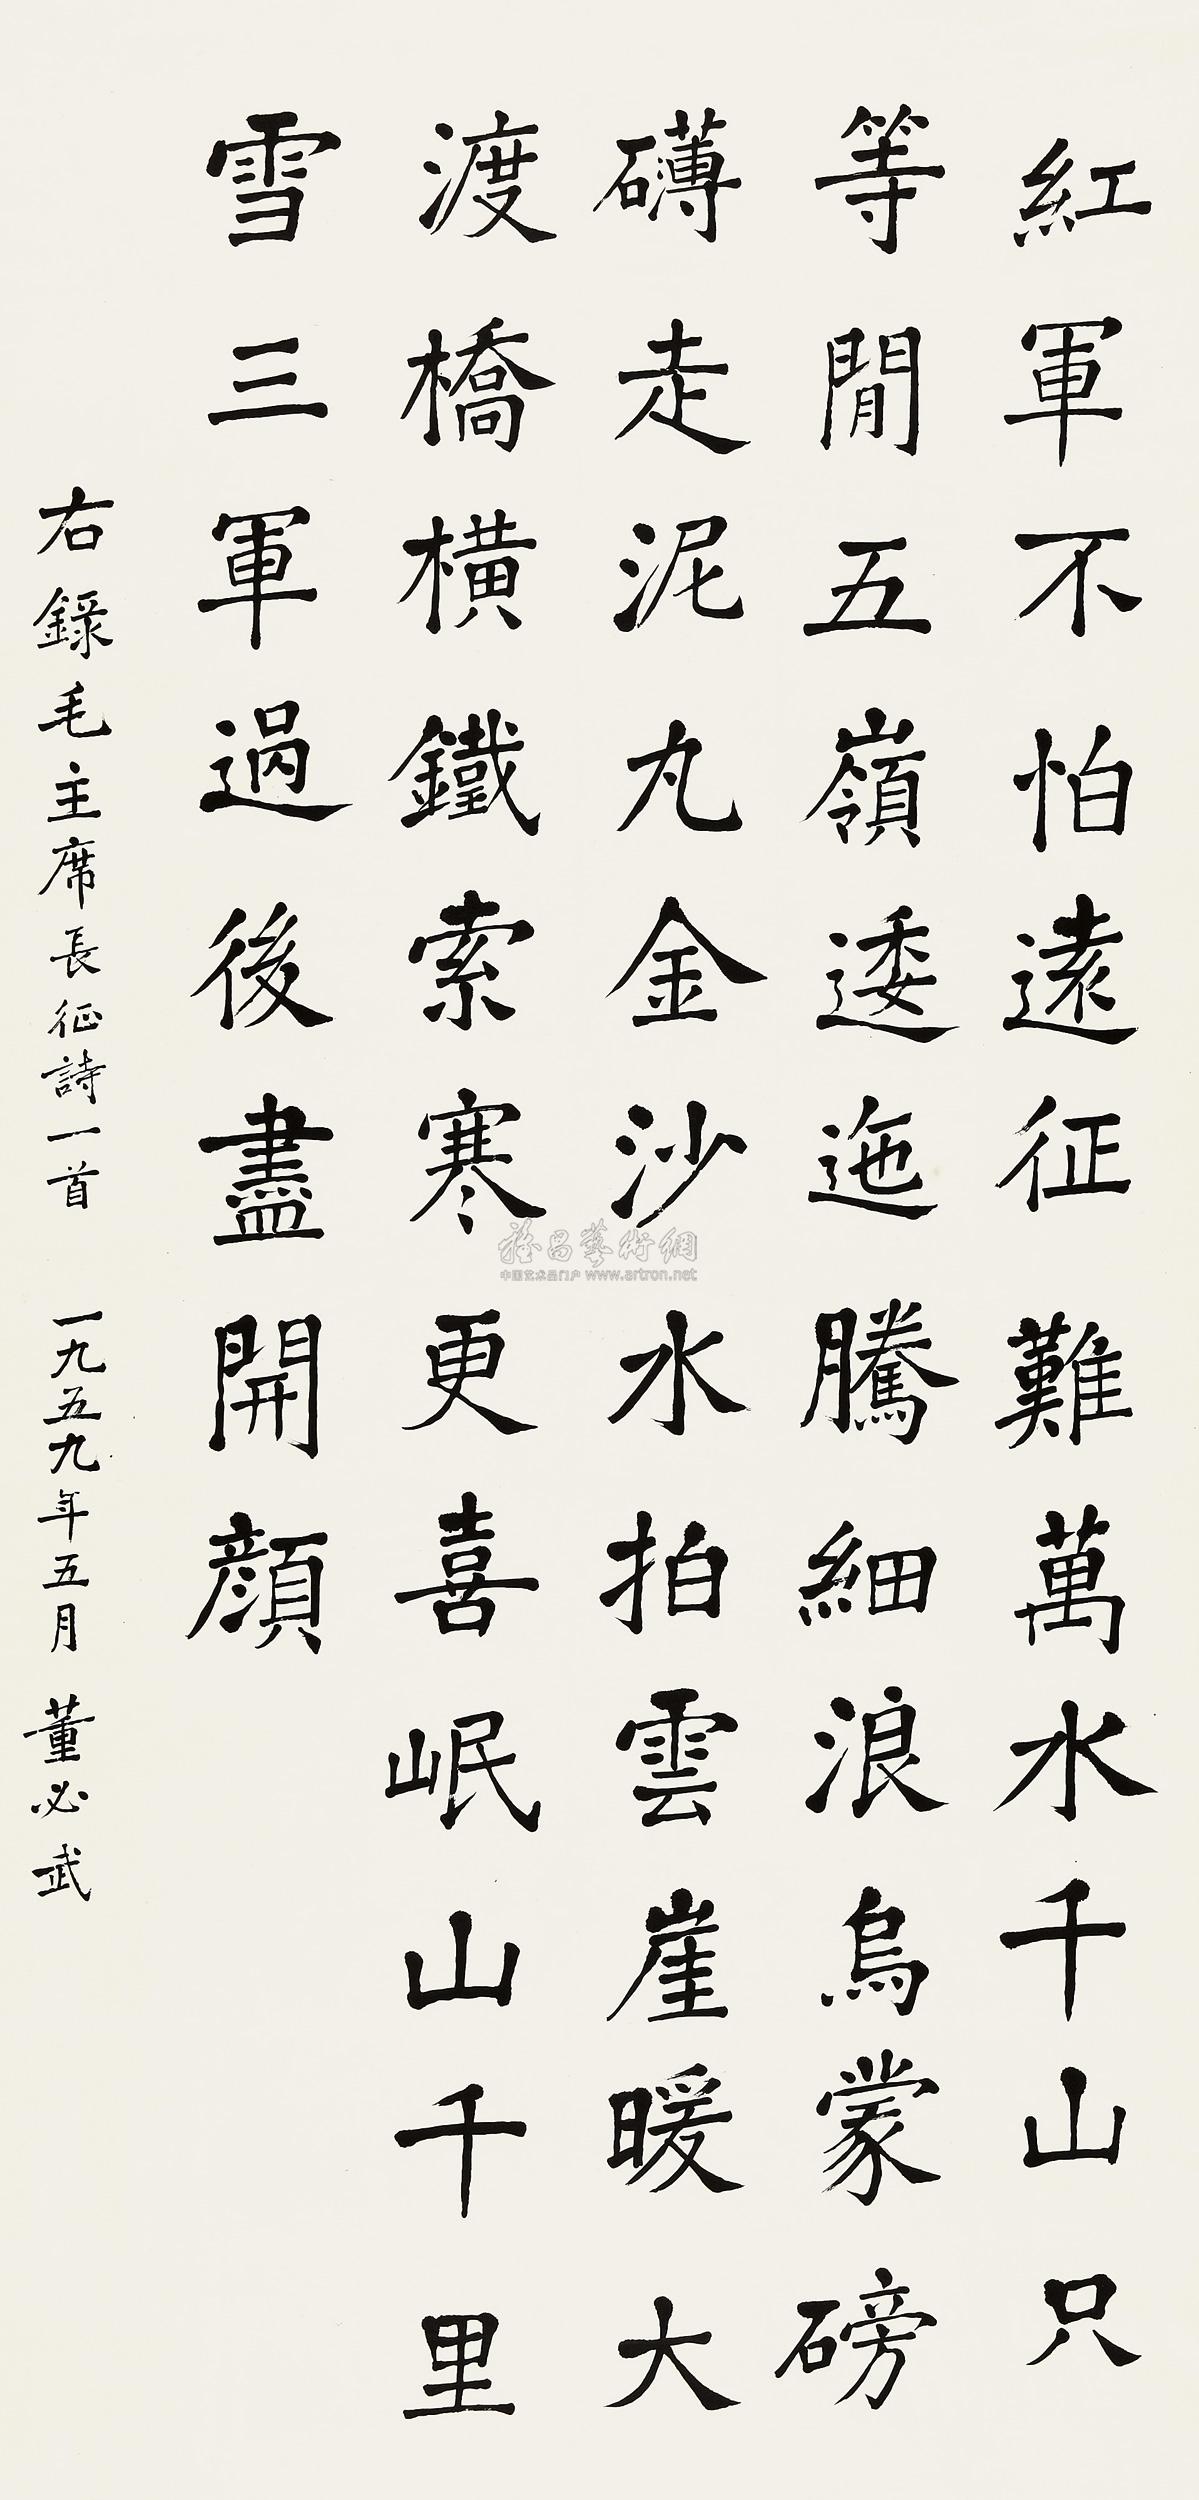 紅軍不怕遠征難萬水千山只
等閒五嶺逶迤騰細浪烏蒙磅
礴走泥丸金沙水拍雲崖暖大
渡橋橫鐵索寒更喜岷山千里
雪三軍過後盡開顏
右錄毛主席長征詩一首 一九五九年五月 董必武
雅昌藝術網
中国艺术品门户 www.artron.net